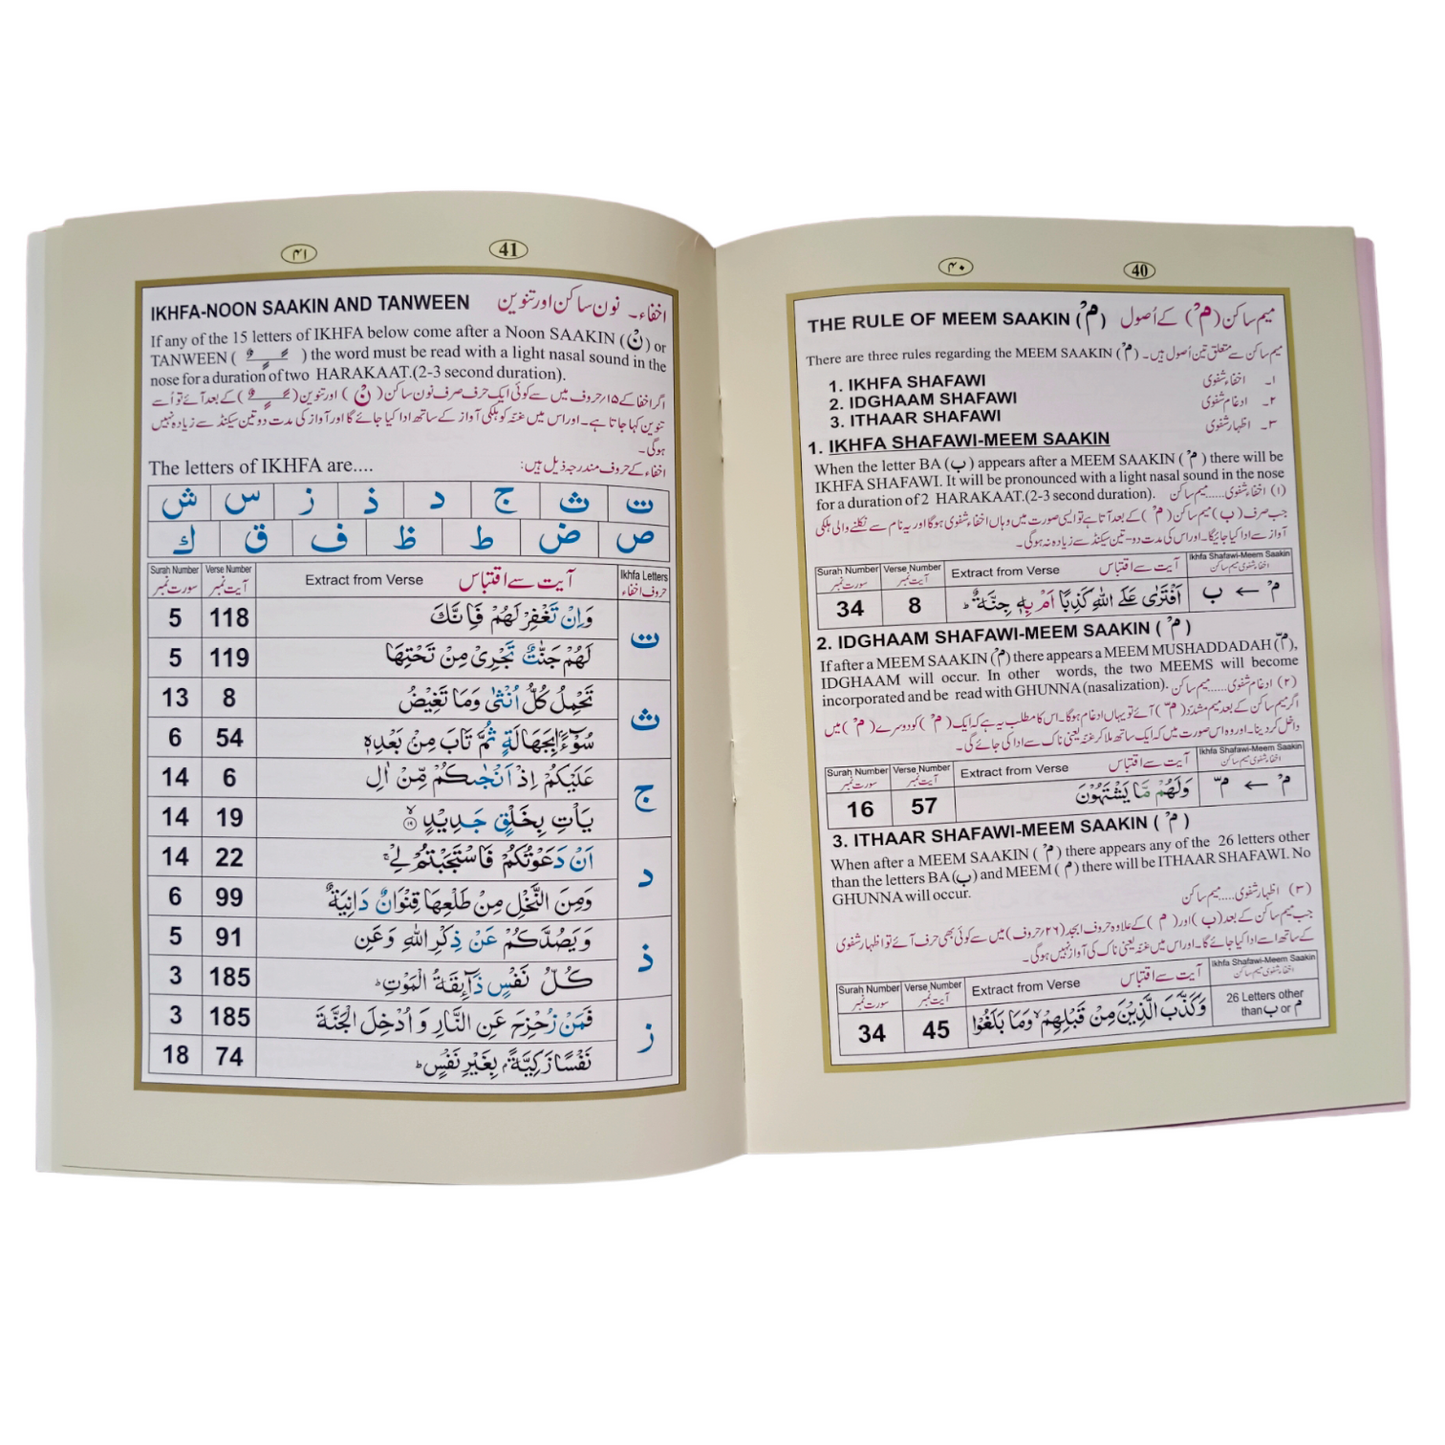 ۴۰
40
THE RULE OF MEEM SAAKIN (مْ) میم ساکن (مْ) کے اُصول
There are three rules regarding the MEEM SAAKIN (مْ) میم ساکن سے متعلق تین اُصول ہیں۔
1. IKHFA SHAFAWI ۱۔ اخفاء شفوی
2. IDGHAAM SHAFAWI ۲۔ ادغام شفوی
3. ITHAAR SHAFAWI ۳۔ اظہار شفوی
1. IKHFA SHAFAWI-MEEM SAAKIN
When the letter BA (ب) appears after a MEEM SAAKIN (مْ) there will be
IKHFA SHAFAWI. It will be pronounced with a light nasal sound in the nose
for a duration of 2 HARAKAAT.(2-3 second duration). (۱) اخفاء شفوی.....میم ساکن
جب صرف (ب) میم ساکن (مْ) کے بعد آتا ہے تو ایسی صورت میں وہاں اخفاء شفوی ہوگا اور یہ نام سے نکلنے والی ہلکی
آواز سے ادا کیا جائیگا۔ اور اس کی مدت دو-تین سیکنڈ سے زیادہ نہ ہوگی۔
Surah Number سورت نمبر Verse Number آیت نمبر Extract from Verse آیت سے اقتباس Ikhfa Shafawi-Meem Saakin اخفاء شفوی میم ساکن
34 8 اَفْتَرٰى عَلَى اللّٰهِ كَذِبًا اَمْ بِهٖ جِنَّةٌ ؕ مْ ← ب
2. IDGHAAM SHAFAWI-MEEM SAAKIN (مْ)
If after a MEEM SAAKIN (مْ) there appears a MEEM MUSHADDADAH (مّ),
IDGHAAM will occur. In other words, the two MEEMS will become
incorporated and be read with GHUNNA (nasalization). (۲) ادغام شفوی.....میم ساکن
اگر میم ساکن کے بعد میم مشدّد (مّ) آئے تو یہاں ادغام ہوگا۔ اس کا مطلب یہ ہے کہ ایک (مْ) کو دوسرے (مْ) میں
داخل کر دینا۔ اور وہ اس صورت میں کہ ایک ساتھ ملا کر غنہ یعنی ناک سے ادا کی جائے گی۔
Surah Number سورت نمبر Verse Number آیت نمبر Extract from Verse آیت سے اقتباس Ikhfa Shafawi-Meem Saakin اخفاء شفوی میم ساکن
16 57 وَلَهُمْ مَّا يَشْتَهُوْنَ مْ ← مّ
3. ITHAAR SHAFAWI-MEEM SAAKIN (مْ)
When after a MEEM SAAKIN (مْ) there appears any of the 26 letters other
than the letters BA (ب) and MEEM (م) there will be ITHAAR SHAFAWI. No
GHUNNA will occur. (۳) اظہار شفوی.....میم ساکن
جب میم ساکن کے بعد (ب) اور (م) کے علاوہ حروف ابجد (۲۶؍حروف) میں سے کوئی بھی حرف آئے تو اظہار شفوی
کے ساتھ اسے ادا کیا جائے گا۔ اور اس میں غنہ یعنی ناک کی آواز نہیں ہوگی۔
Surah Number سورت نمبر Verse Number آیت نمبر Extract from Verse آیت سے اقتباس Ikhfa Shafawi-Meem Saakin اخفاء شفوی میم ساکن
34 45 وَكَذَّبَ الَّذِيْنَ مِنْ قَبْلِهِمْ ۙ وَمَا بَلَغُوْا 26 Letters other
than ب or م
۴۱
41
IKHFA-NOON SAAKIN AND TANWEEN اخفاء۔ نون ساکن اور تنوین
If any of the 15 letters of IKHFA below come after a Noon SAAKIN (نْ) or
TANWEEN (ـًـٍـٌ) the word must be read with a light nasal sound in the
nose for a duration of two HARAKAAT.(2-3 second duration).
اگر اخفاء کے ۱۵؍حروف میں سے کوئی ایک حرف صرف نون ساکن (نْ) اور تنوین (ـًـٍـٌ) کے بعد آئے تو اُسے
تنوین کہا جاتا ہے۔ اور اس میں غنہ کو ہلکی آواز کے ساتھ ادا کیا جائے گا اور آواز کی مدت دو تین سیکنڈ سے زیادہ نہیں
ہوگی۔
The letters of IKHFA are.... اخفاء کے حروف مندرجہ ذیل ہیں:
ت ث ج د ذ ز س ش
ص ض ط ظ ف ق ك
Surah Number سورت نمبر Verse Number آیت نمبر Extract from Verse آیت سے اقتباس Ikhfa Letters حروف اخفاء
5 118 وَاِنْ تَغْفِرْ لَهُمْ فَاِنَّكَ ت
5 119 لَهُمْ جَنّٰتٌ تَجْرِىْ مِنْ تَحْتِهَا
13 8 تَحْمِلُ كُلُّ اُنْثٰى وَمَا تَغِيْضُ ث
6 54 سُوْٓءًۢا بِجَهَالَةٍ ثُمَّ تَابَ مِنْ بَعْدِهٖ
14 6 عَلَيْكُمْ اِذْ اَنْجٰىكُمْ مِّنْ اٰلِ ج
14 19 يَاْتِ بِخَلْقٍ جَدِيْدٍ ۙ ۱۹
14 22 اَنْ دَعَوْتُكُمْ فَاسْتَجَبْتُمْ لِىْ ۚ د
6 99 وَمِنَ النَّخْلِ مِنْ طَلْعِهَا قِنْوَانٌ دَانِيَةٌ
5 91 وَيَصُدَّكُمْ عَنْ ذِكْرِ اللّٰهِ وَعَنِ ذ
3 185 كُلُّ نَفْسٍ ذَآئِقَةُ الْمَوْتِ ؕ
3 185 فَمَنْ زُحْزِحَ عَنِ النَّارِ وَاُدْخِلَ الْجَنَّةَ ز
18 74 نَفْسًا زَكِيَّةً ۢ بِغَيْرِ نَفْسٍ ؕ